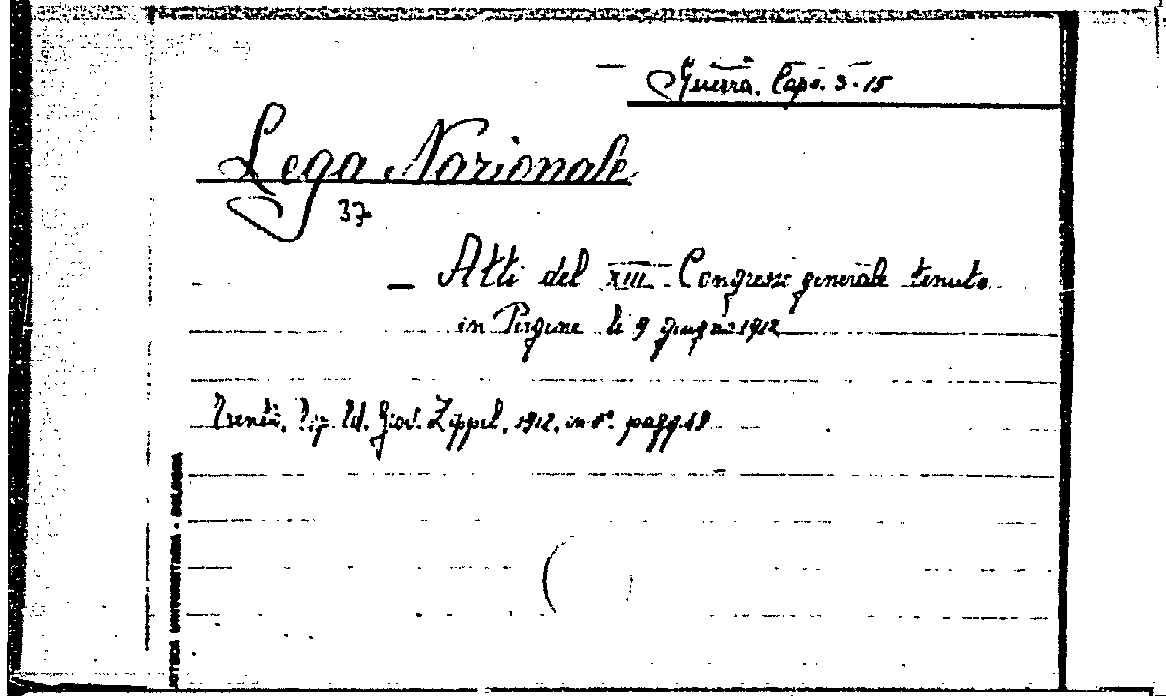 Guerra. Caps. 3-15
Lega Nazionale
37
— Atti del XIII Congresso generale tenuto
in Pergine li 9 giugno 1912
Trento, Tip. Ed. Giov. Zippel, 1912, in 8° pagg. 48
UNIVERSITARIA - BOLOGNA